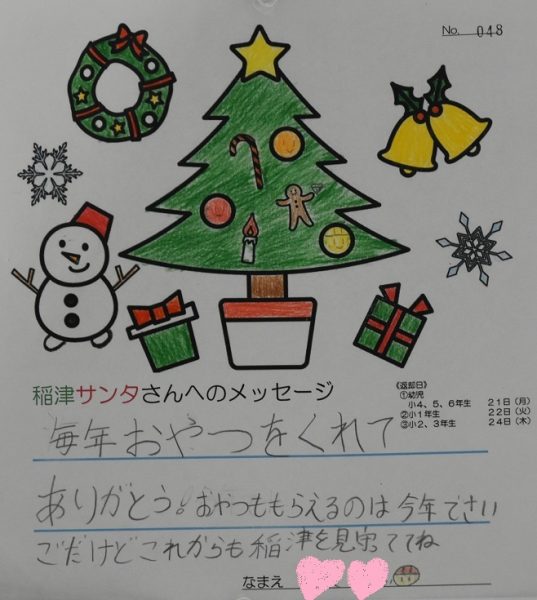 No. 048
稲津サンタさんへのメッセージ
《返却日》
①幼児
小4、5、6年生 21日(月)
②小1年生 22日(火)
③小2、3年生 24日(木)
毎年おやつをくれて
ありがとう。おやつももらえるのは今年でさい
ごだけどこれからも稲津を見守っててね
なまえ